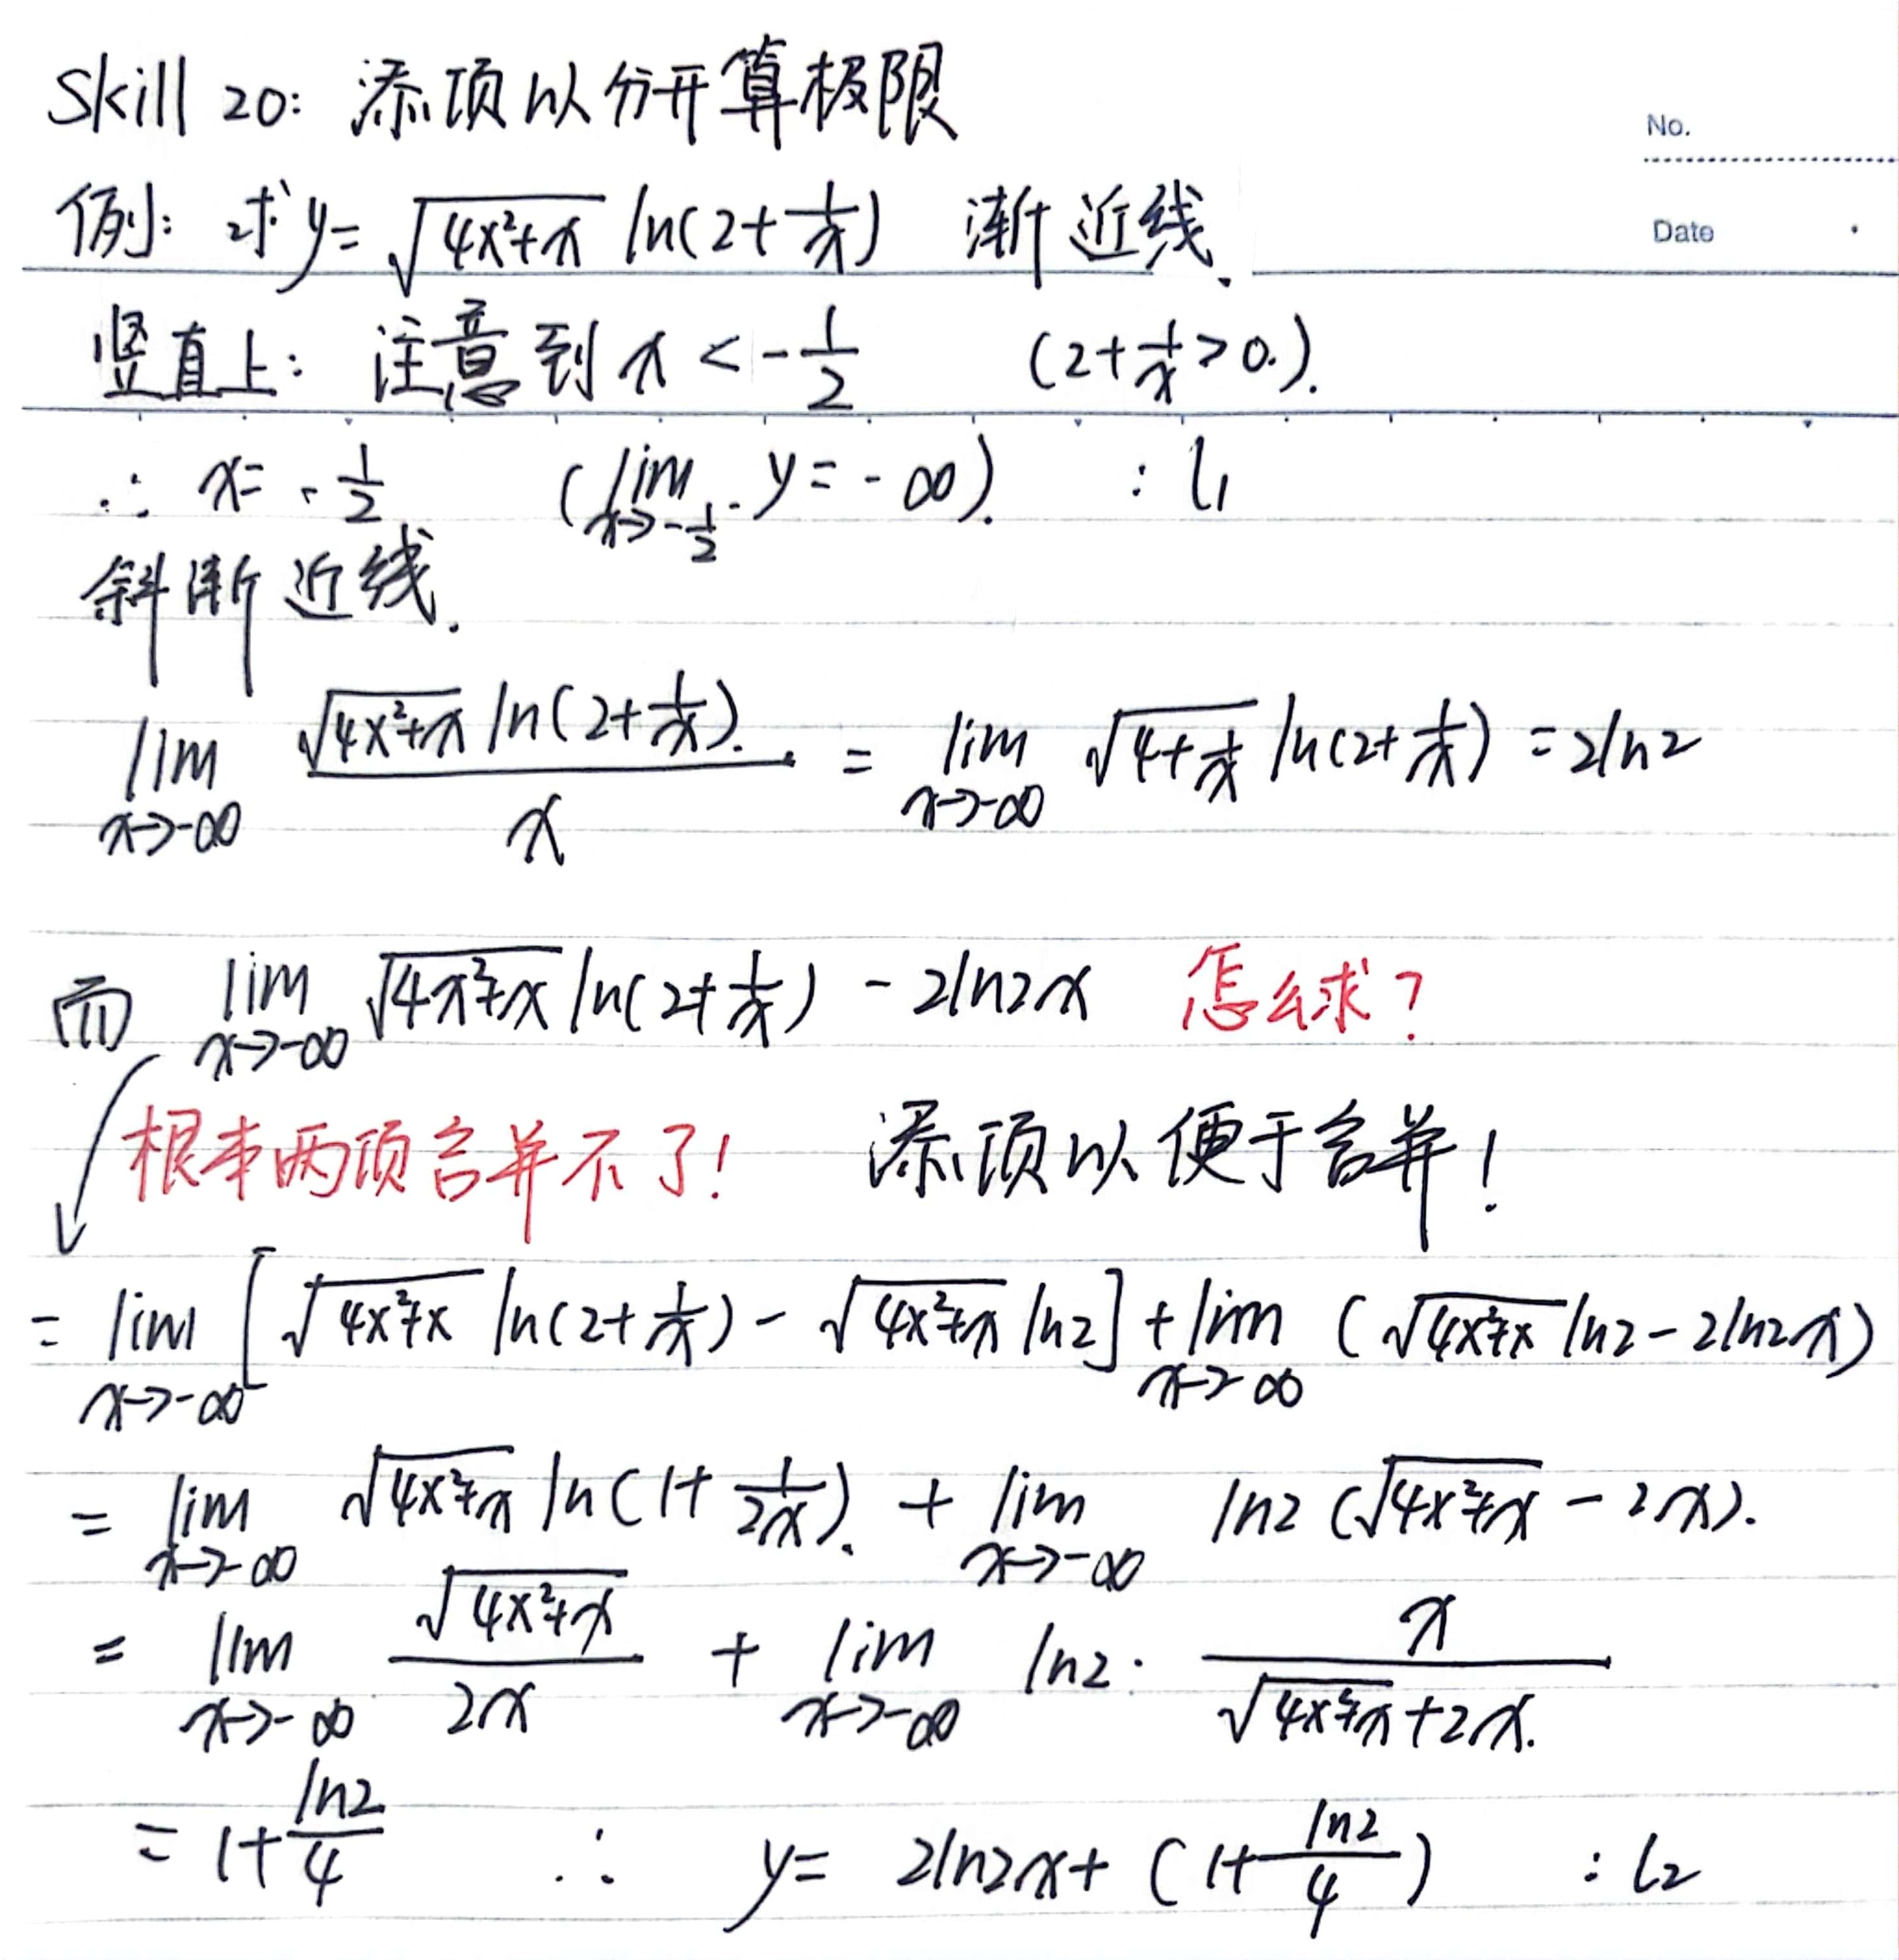 Skill 20: 添项以分开算极限
No.
例: 求 y = √(4x²+x) ln(2+1/x) 渐近线.
Date
竖直上: 注意到 x < -1/2 (2+1/x>0.).
∴ x = -1/2 (lim x→-1/2⁻ y = -∞). : l₁
斜渐近线.
lim x→-∞ √(4x²+x) ln(2+1/x) / x = lim x→-∞ √(4+1/x) ln(2+1/x) = 2ln2
而 lim x→-∞ √(4x²+x) ln(2+1/x) - 2ln2x 怎么求?
根本两项合并不了! 添项以便于合并!
= lim x→-∞ [√(4x²+x) ln(2+1/x) - √(4x²+x) ln2] + lim x→∞ (√(4x²+x) ln2 - 2ln2x)
= lim x→-∞ √(4x²+x) ln(1+1/2x). + lim x→-∞ ln2 (√(4x²+x) - 2x).
= lim x→-∞ √(4x²+x) / 2x + lim x→-∞ ln2 · x / (√(4x²+x) + 2x.
= 1+ln2/4 ∴ y = 2ln2x + (1+ln2/4) : l₂